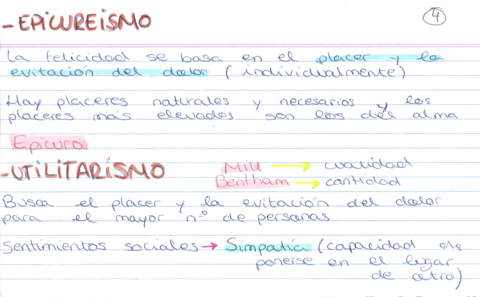 4
-EPICUREÍSMO
La felicidad se basa en el placer y la
evitación del dolor (individualmente)
Hay placeres naturales y necesarios y los
placeres más elevados son los del alma
Epicuro
-UTILITARISMO
Mill → cualidad
Bentham → cantidad
Busca el placer y la evitación del dolor
para el mayor nº de personas
Sentimientos sociales → Simpatía (capacidad de
ponerse en el lugar
de otro)